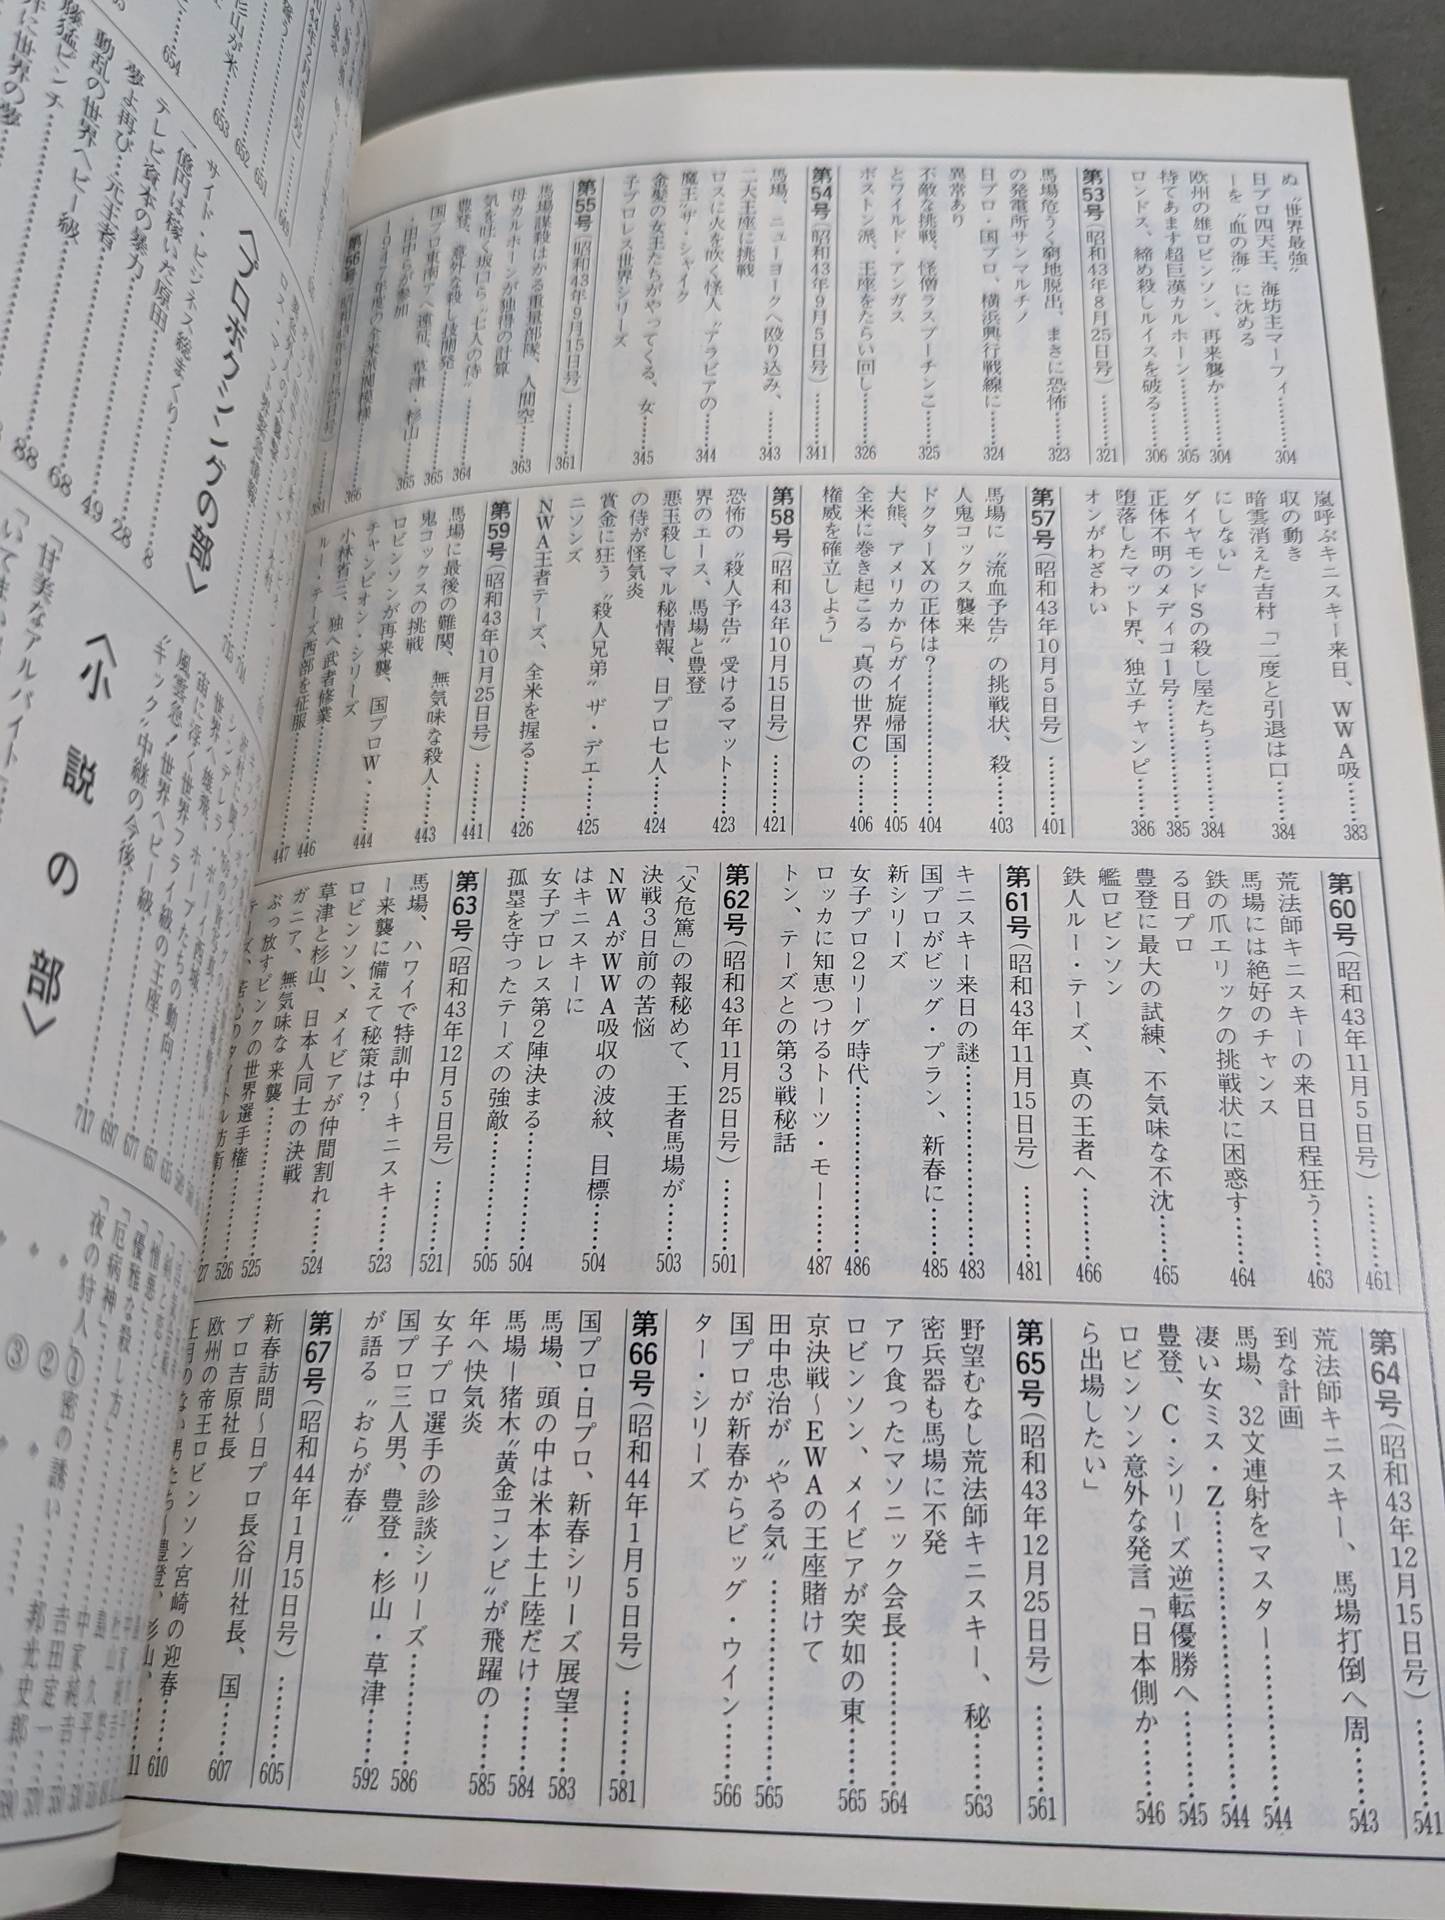 ぬ〝世界最強〟……304
日プロ四天王、海坊主マーフィ
ーを〝血の海〟に沈める……304
欧州の雄ロビンソン、再来襲か……304
持てあます超巨漢カルホーン……305
ロンドス、締め殺しルイスを破る……306
第53号(昭和43年8月25日号)……321
馬場危うく窮地脱出、まさに恐怖
の発電所サンマルチノ……323
日プロ・国プロ、横浜興行戦線に
異常あり……324
不敵な挑戦、怪僧ラスプーチンこ
とワイルド・アンガス……325
ボストン派、王座をたらい回し……326
第54号(昭和43年9月5日号)……341
馬場、ニューヨークへ殴り込み、
二大王座に挑戦……343
ロスに火を吹く怪人〝アラビアの
魔王〟ザ・シャイク……344
金髪の女王たちがやってくる、女
子プロレス世界シリーズ……345
第55号(昭和43年9月15日号)……361
馬場謀殺はかる重量部隊、人間空
母カルホーンが独得の計算……363
気を吐く坂口ら〝七人の侍〟……364
豊登、意外な殺し技開発……365
国プロ東南アへ遠征、草津・杉山
・田中らが参加……365
1947年度の全米派閥模様……366
第56号(昭和43年9月25日号)……381
嵐呼ぶキニスキー来日、WWA吸
収の動き……383
暗雲消えた吉村「二度と引退は口
にしない」……384
ダイヤモンドSの殺し屋たち……384
正体不明のメディコ1号……385
堕落したマット界、独立チャンピ
オンがわざわい……386
第57号(昭和43年10月5日号)……401
馬場に〝流血予告〟の挑戦状、殺
人鬼コックス襲来……403
ドクターXの正体は?……404
大熊、アメリカからガイ旋帰国……405
全米に巻き起こる「真の世界Cの
権威を確立しよう」……406
第58号(昭和43年10月15日号)……421
恐怖の〝殺人予告〟受けるマット
界のエース、馬場と豊登……423
悪玉殺しマル秘情報、日プロ七人
の侍が怪気炎……424
賞金に狂う〝殺人兄弟〟ザ・デュ
ニソンズ……425
NWA王者テーズ、全米を握る……426
第59号(昭和43年10月25日号)……441
馬場に最後の難関、無気味な殺人
鬼コックスの挑戦……443
ロビンソンが再来襲、国プロW・
チャンピオン・シリーズ……444
小林省三、独へ武者修業……446
ルー・テーズ西部を征服……447
第60号(昭和43年11月5日号)……461
荒法師キニスキーの来日日程狂う……463
馬場には絶好のチャンス
鉄の爪エリックの挑戦状に困惑す
る日プロ……464
豊登に最大の試練、不気味な不沈
艦ロビンソン……465
鉄人ルー・テーズ、真の王者へ……466
第61号(昭和43年11月15日号)……481
キニスキー来日の謎……483
国プロがビッグ・プラン、新春に
新シリーズ……485
女子プロ2リーグ時代……486
ロッカに知恵つけるトーツ・モー
トン、テーズとの第3戦秘話……487
第62号(昭和43年11月25日号)……501
「父危篤」の報秘めて、王者馬場が
決戦3日前の苦悩……503
NWAがWWA吸収の波紋、目標
はキニスキーに……504
女子プロレス第2陣決まる……504
孤塁を守ったテーズの強敵……505
第63号(昭和43年12月5日号)……521
馬場、ハワイで特訓中〜キニスキ
ー来襲に備えて秘策は?……523
ロビンソン、メイビアが仲間割れ……524
草津と杉山、日本人同士の決戦
ガニア、無気味な来襲……525
ぶっ放すピンクの世界選手権……526
第64号(昭和43年12月15日号)……541
荒法師キニスキー、馬場打倒へ周
到な計画……543
馬場、32文連射をマスター……544
凄い女ミス・Z……544
豊登、C・シリーズ逆転優勝へ……545
ロビンソン意外な発言「日本側か
ら出場したい」……546
第65号(昭和43年12月25日号)……561
野望むなし荒法師キニスキー、秘
密兵器も馬場に不発……563
アワ食ったマソニック会長……564
ロビンソン、メイビアが突如の東
京決戦〜EWAの王座賭けて……565
田中忠治が〝やる気〟……565
国プロが新春からビッグ・ウイン
ター・シリーズ……566
第66号(昭和44年1月5日号)……581
国プロ・日プロ、新春シリーズ展望……583
馬場、頭の中は米本土上陸だけ……584
馬場ー猪木〝黄金コンビ〟が飛躍の
年へ快気炎……585
女子プロ選手の診談シリーズ……586
国プロ三人男、豊登・杉山・草津
が語る〝おらが春〟……592
第67号(昭和44年1月15日号)……605
新春訪問〜日プロ長谷川社長、国
プロ吉原社長……607
欧州の帝王ロビンソン宮崎の迎春……610
〈プロボクシングの部〉
サイド・ビジネス総まくり……8
一億円は稼いだ原田……28
テレビ資本の暴力……49
夢よ再び…元王者……68
動乱の世界ヘビー級……88
世界へ雄飛、ホープたちの動向
宙に浮く世界フライ級の王座
風雲急!世界ヘビー級……697
〝キック〟中継の今後……717
〈小説の部〉
「甘美なアルバイト」
「厄病神」
「夜の狩人」
①密の誘い
②
③